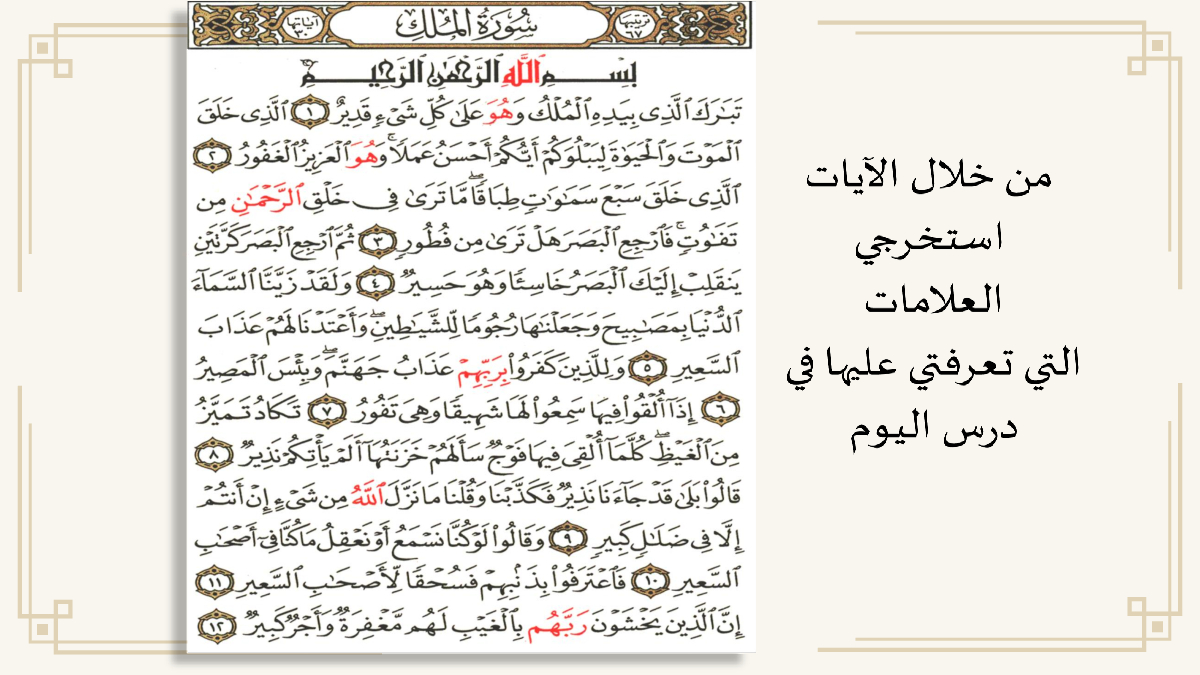 سُورَةُ المُلكِ
ترتيبها ٦٧
آياتها ٣٠
بِسْمِ ٱللَّهِ ٱلرَّحْمَٰنِ ٱلرَّحِيمِ
تَبَٰرَكَ ٱلَّذِى بِيَدِهِ ٱلْمُلْكُ وَهُوَ عَلَىٰ كُلِّ شَىْءٍ قَدِيرٌ ١ ٱلَّذِى خَلَقَ
ٱلْمَوْتَ وَٱلْحَيَوٰةَ لِيَبْلُوَكُمْ أَيُّكُمْ أَحْسَنُ عَمَلًا ۚ وَهُوَ ٱلْعَزِيزُ ٱلْغَفُورُ ٢
ٱلَّذِى خَلَقَ سَبْعَ سَمَٰوَٰتٍ طِبَاقًا ۖ مَّا تَرَىٰ فِى خَلْقِ ٱلرَّحْمَٰنِ مِن
تَفَٰوُتٍ ۖ فَٱرْجِعِ ٱلْبَصَرَ هَلْ تَرَىٰ مِن فُطُورٍ ٣ ثُمَّ ٱرْجِعِ ٱلْبَصَرَ كَرَّتَيْنِ
يَنقَلِبْ إِلَيْكَ ٱلْبَصَرُ خَاسِئًا وَهُوَ حَسِيرٌ ٤ وَلَقَدْ زَيَّنَّا ٱلسَّمَآءَ
ٱلدُّنْيَا بِمَصَٰبِيحَ وَجَعَلْنَٰهَا رُجُومًا لِّلشَّيَٰطِينِ ۖ وَأَعْتَدْنَا لَهُمْ عَذَابَ
ٱلسَّعِيرِ ٥ وَلِلَّذِينَ كَفَرُوا۟ بِرَبِّهِمْ عَذَابُ جَهَنَّمَ ۖ وَبِئْسَ ٱلْمَصِيرُ
٦ إِذَآ أُلْقُوا۟ فِيهَا سَمِعُوا۟ لَهَا شَهِيقًا وَهِىَ تَفُورُ ٧ تَكَادُ تَمَيَّزُ
مِنَ ٱلْغَيْظِ ۖ كُلَّمَآ أُلْقِىَ فِيهَا فَوْجٌ سَأَلَهُمْ خَزَنَتُهَآ أَلَمْ يَأْتِكُمْ نَذِيرٌ ٨
قَالُوا۟ بَلَىٰ قَدْ جَآءَنَا نَذِيرٌ فَكَذَّبْنَا وَقُلْنَا مَا نَزَّلَ ٱللَّهُ مِن شَىْءٍ إِنْ أَنتُمْ
إِلَّا فِى ضَلَٰلٍ كَبِيرٍ ٩ وَقَالُوا۟ لَوْ كُنَّا نَسْمَعُ أَوْ نَعْقِلُ مَا كُنَّا فِىٓ أَصْحَٰبِ
ٱلسَّعِيرِ ١٠ فَٱعْتَرَفُوا۟ بِذَنۢبِهِمْ فَسُحْقًا لِّأَصْحَٰبِ ٱلسَّعِيرِ ١١
إِنَّ ٱلَّذِينَ يَخْشَوْنَ رَبَّهُم بِٱلْغَيْبِ لَهُم مَّغْفِرَةٌ وَأَجْرٌ كَبِيرٌ ١٢
من خلال الآيات
استخرجي
العلامات
التي تعرفتي عليها في
درس اليوم